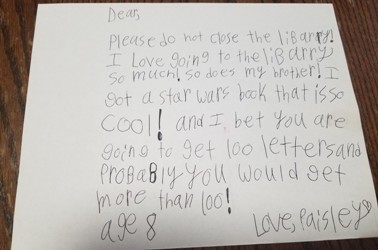 Dear,
Please do not close the liBarry!
I Love going to the liBarry
so much! so does my brother! I
got a star wars book that is so
COOl! and I bet you are
going to get 100 letters and
ProBaBly you would get
more than 100!
age 8 Love, Paisley